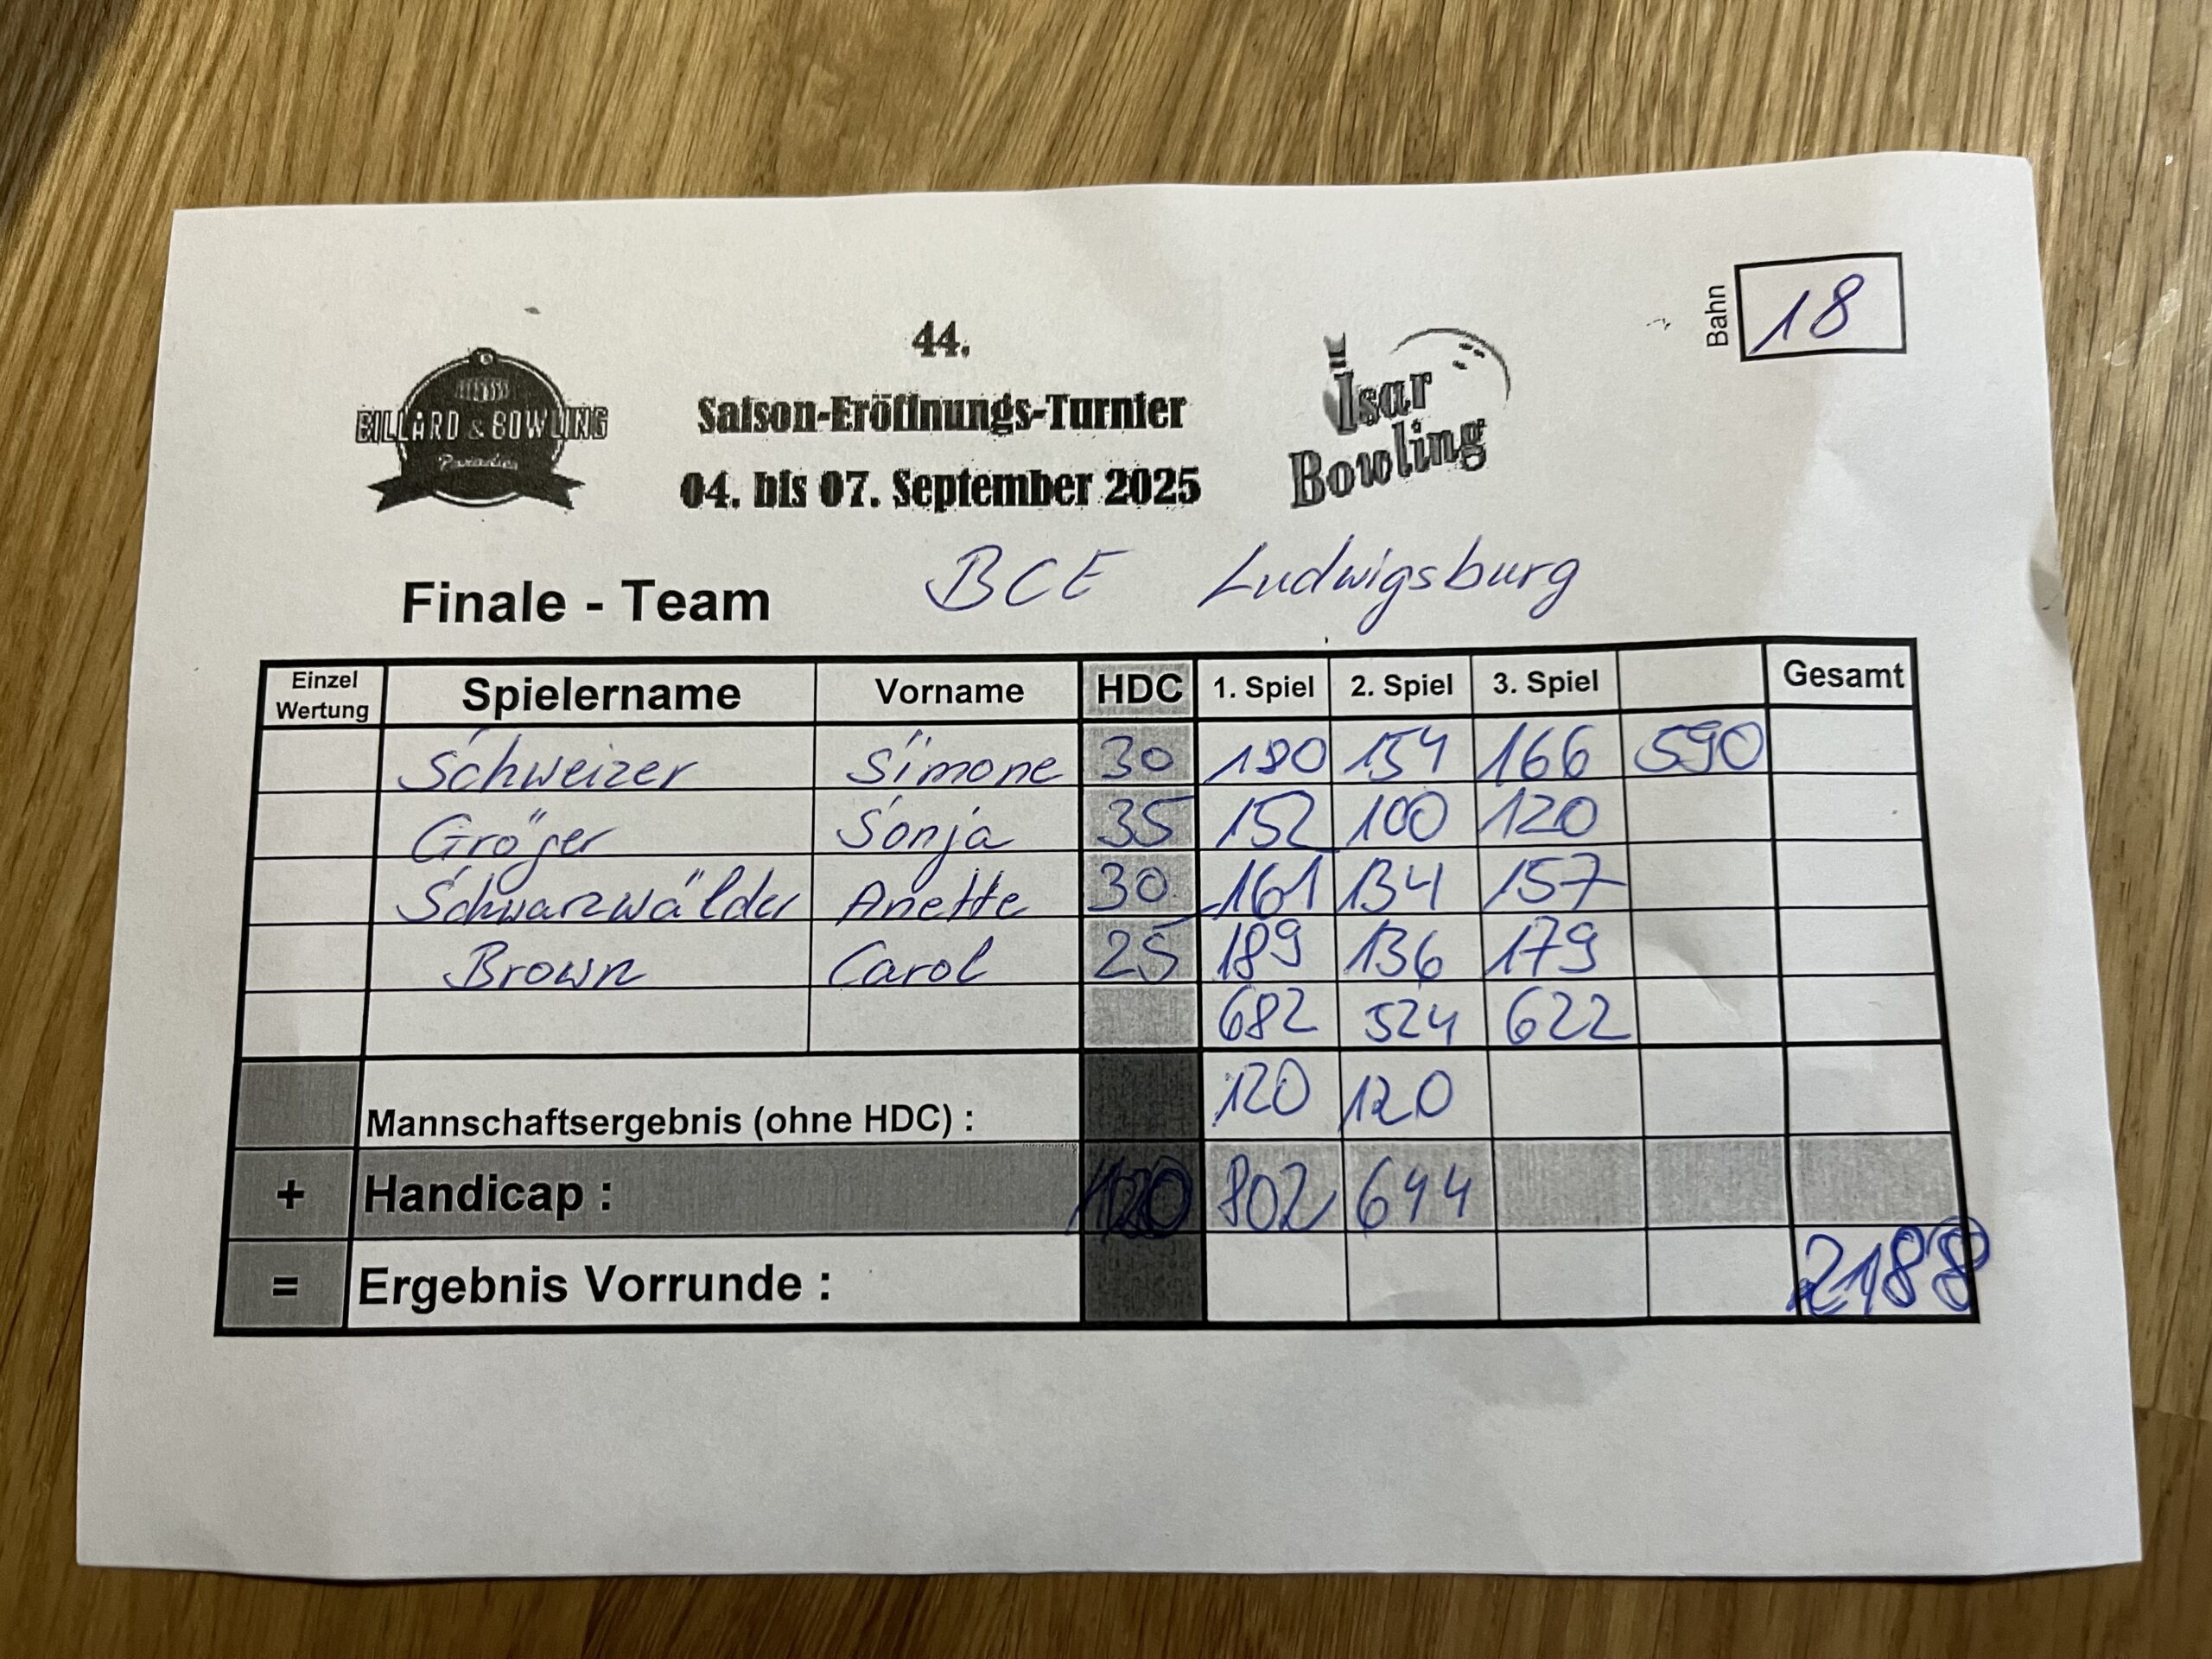 Bahn 18
44.
BILLARD & BOWLING
Paradies
Saison-Eröffnungs-Turnier
04. bis 07. September 2025
Isar
Bowling
Finale - Team BCE Ludwigsburg
Einzel Wertung Spielername Vorname HDC 1. Spiel 2. Spiel 3. Spiel Gesamt
Schweizer Simone 30 180 154 166 590
Gröger Sonja 35 152 100 120
Schwarzwälder Anette 30 161 134 157
Brown Carol 25 189 136 179
682 524 622
Mannschaftsergebnis (ohne HDC) : 120 120
+ Handicap : 120 802 644
= Ergebnis Vorrunde : 2188